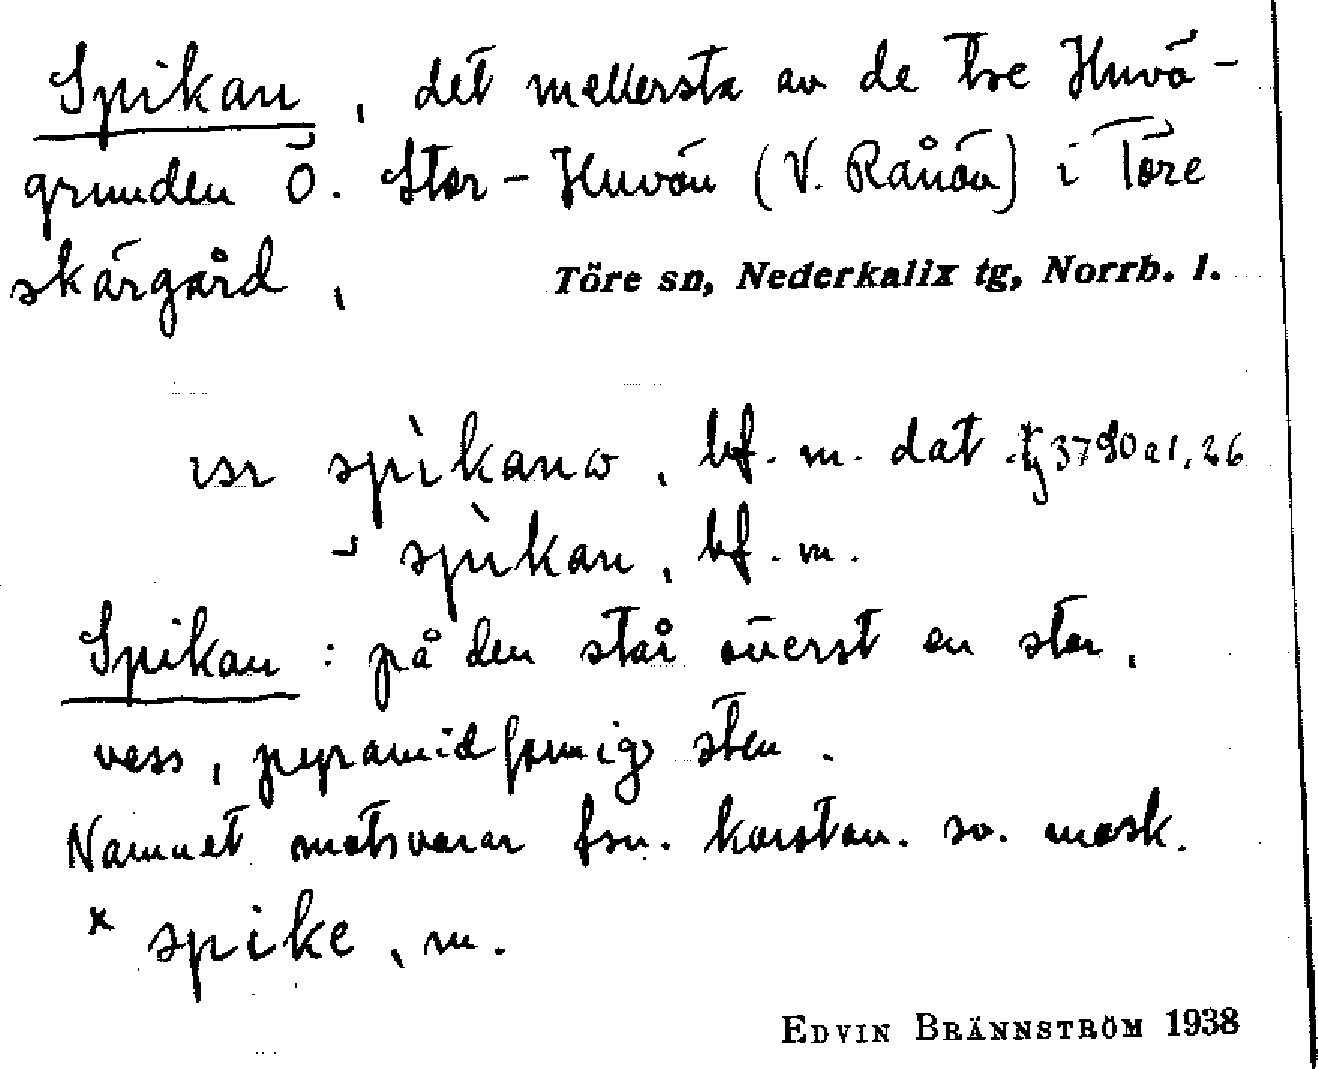 Spikan, det mellersta av de tre Huvö-
grunden Ö. Stor-Huvön (V. Rånön) i Töre
skärgård,
Töre sn, Nederkalix tg, Norrb. l.
spìkano, bf. m. dat 3790 a1, 26
spìkan, bf. m.
Spikan: på den står överst en stor,
vass, pyramidformig sten.
Namnet motsvarar fsv. konstr. sv. mask.
* spike, m.
EDVIN BRÄNNSTRÖM 1938